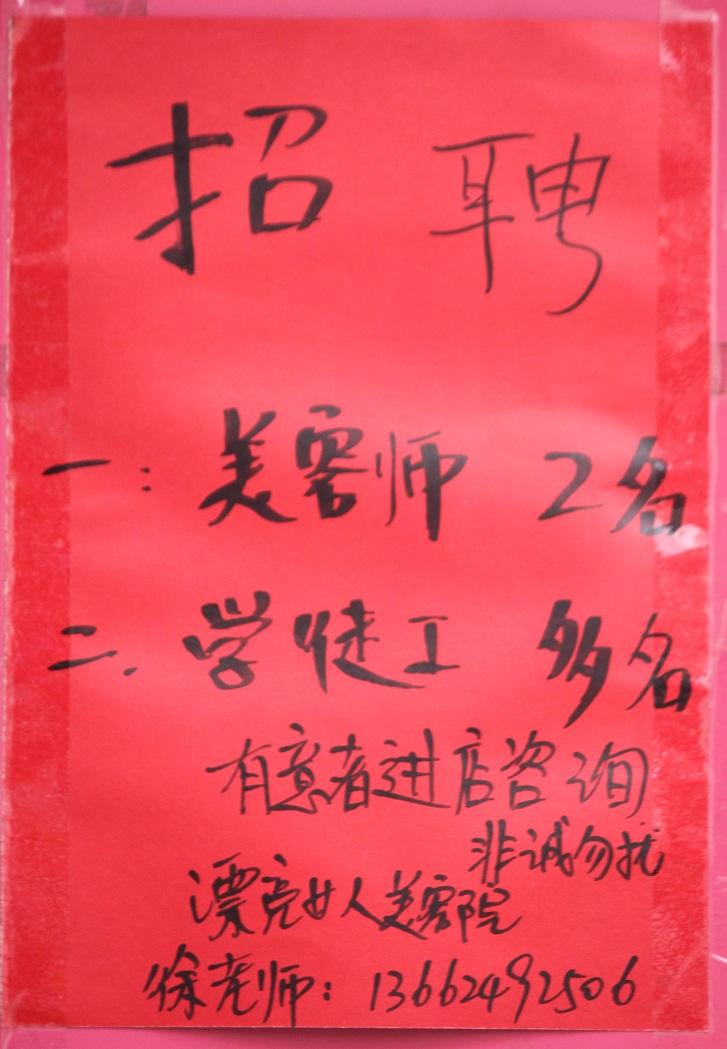 招聘
一：美容师 2名
二、学徒工 多名
有意者进店咨询
非诚勿扰
漂亮女人美容院
徐老师：13662492506